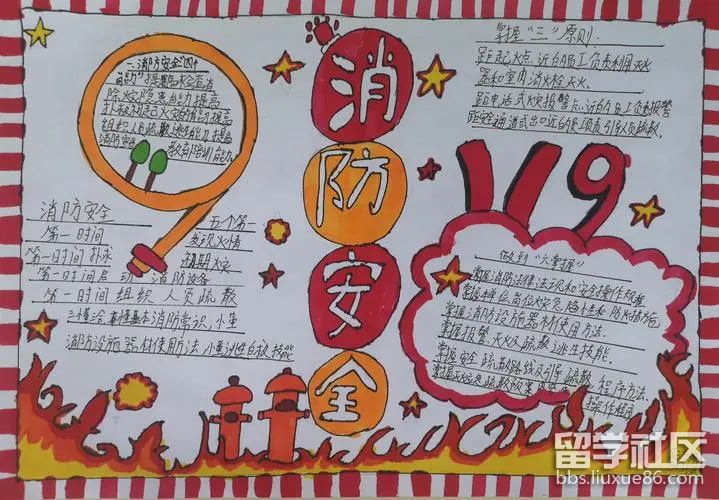 一消防安全"四个
能力"提
除火灾隐患能力提高
扑救初起火灾能力提高
组织人员疏散逃生能力提高
消防宣传
教育培训能力
消
防
安
全
掌握"三"原则
距起火点近的员工负责利用灭火
器和室内消火栓灭火
距电话或火灾报警点近的员工负责报警
距安全通道或出口近的员工负责引导人员疏散
119
消防安全
五个第一
第一时间
发现火情
第一时间扑救
初期火灾
第一时间启动消防设备
第一时间组织人员疏散
消防常识
消防设施器材使用方法
技能
做到"六掌握"
掌握消防法律法规和安全操作规程
掌握本单位岗位火灾危险性和防火措施
掌握消防设施器材使用方法
掌握报警、灭火及疏散逃生技能
掌握安全疏散路线及引导疏散程序方法
掌握火灾应急疏散预案
操作程序
留学社区
bbs.liuxue86.com